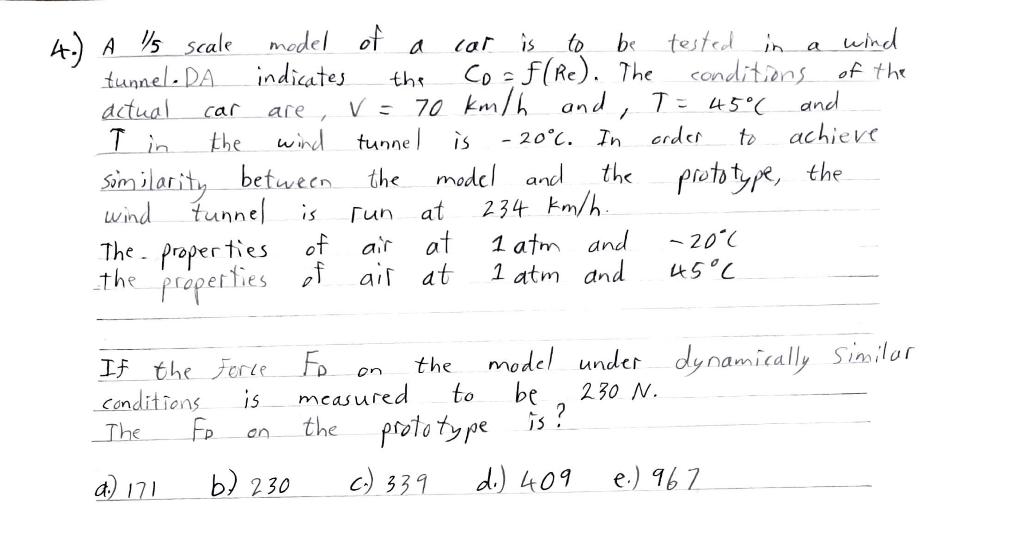 4.) A 1/5 scale model of a car is to be tested in a wind
tunnel. DA indicates the CD = f(Re). The conditions of the
actual car are, V = 70 km/h and, T = 45°C and
T in the wind tunnel is -20°C. In order to achieve
similarity between the model and the prototype, the
wind tunnel is run at 234 km/h.
The properties of air at 1 atm and -20°C
the properties of air at 1 atm and 45°C
If the Force FD on the model under dynamically similar
conditions is measured to be 230 N.
The FD on the prototype is?
a.) 171 b.) 230 c.) 339 d.) 409 e.) 967